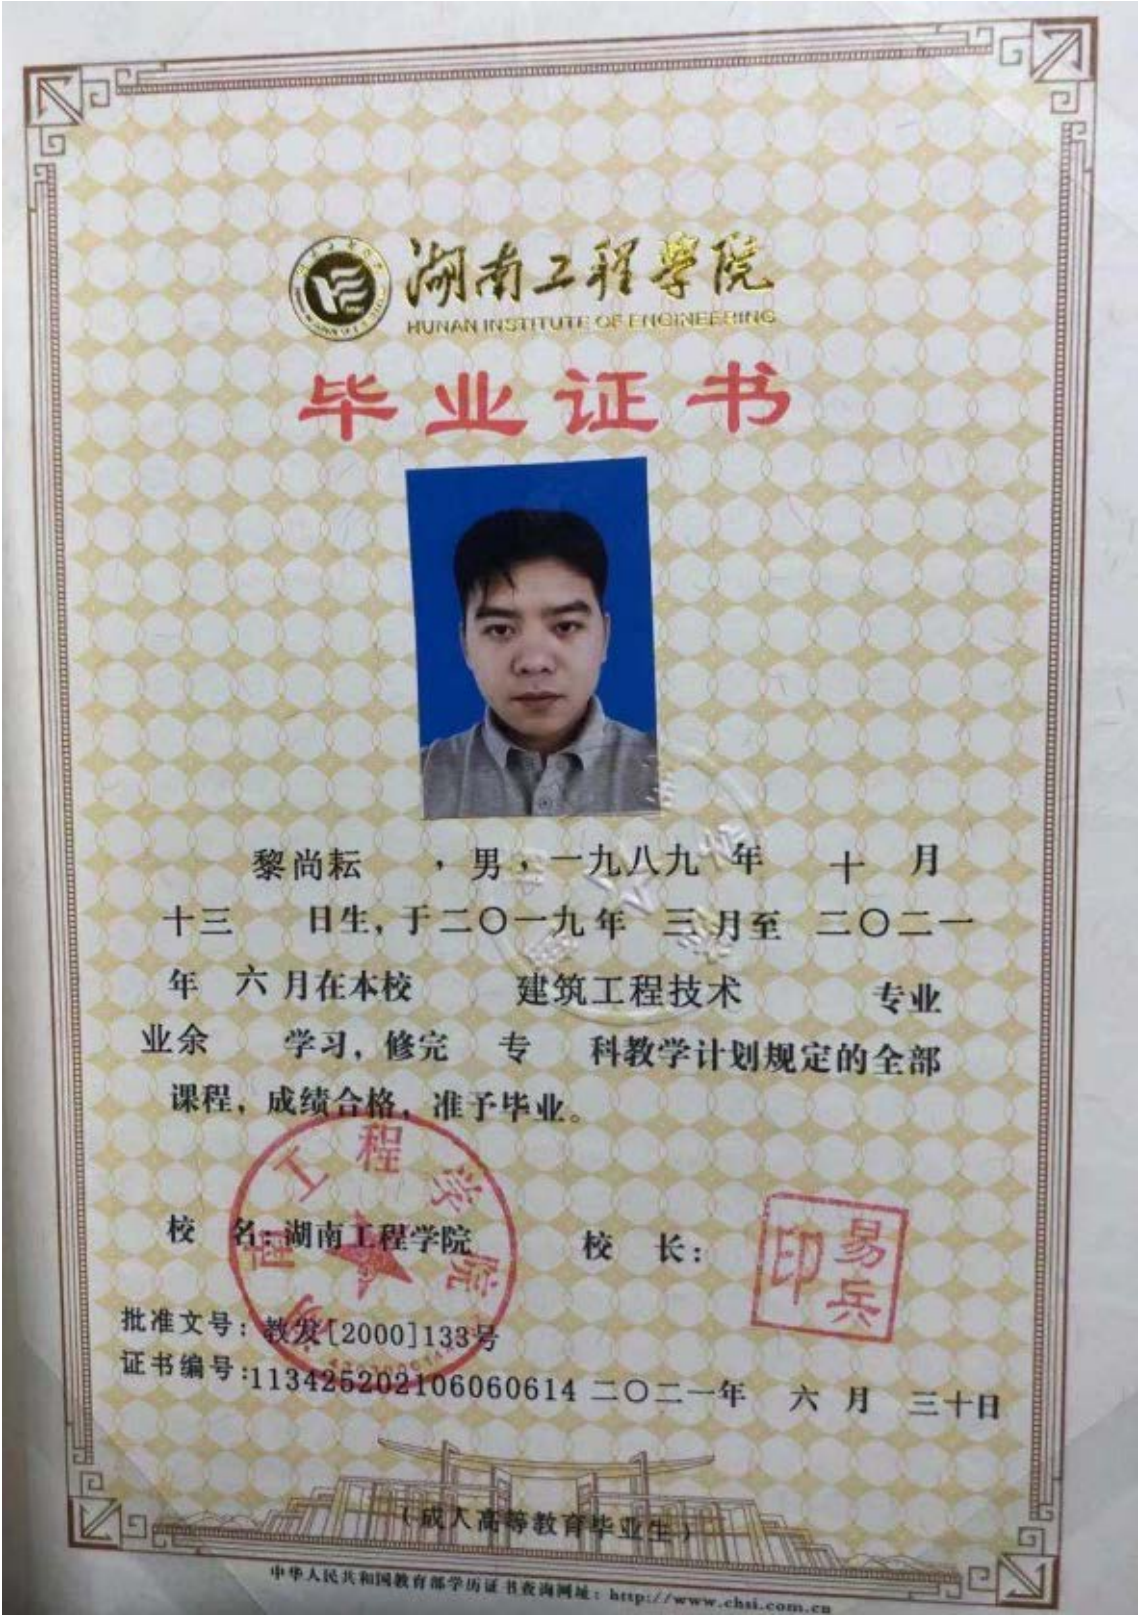 湖南工程学院
HUNAN INSTITUTE OF ENGINEERING
毕业证书
黎尚耘 ，男，一九八九 年 十 月
十三 日生，于二〇一九 年 三 月至 二〇二一
年 六 月在本校 建筑工程技术 专业
业余 学习，修完 专 科教学计划规定的全部
课程，成绩合格，准予毕业。
校 名：湖南工程学院 校 长：
易兵印
湖南工程学院
批准文号：教发[2000]133号
证书编号：113425202106060614 二〇二一年 六 月 三十日
（成人高等教育毕业生）
中华人民共和国教育部学历证书查询网址：http://www.chsi.com.cn